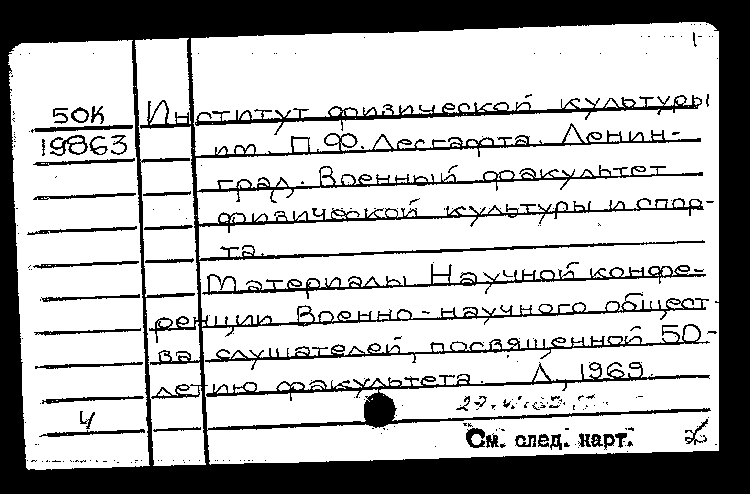 1
50К Институт физической культуры
19863 им. П.Ф.Лесгафта. Ленин-
град. Военный факультет
физической культуры и спор-
та.
Материалы Научной конфе-
ренции Военно-научного общест-
ва слушателей, посвященной 50-
летию факультета. Л., 1969.
4
См. след. карт.